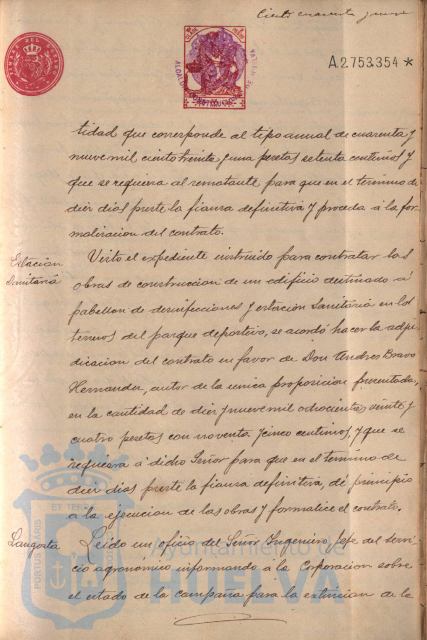 Ciento cuarenta y nueve
A2753354*
tidad que corresponde al tipo anual de cuarenta y
nueve mil ciento treinta y una pesetas setenta centimos y
que se requiera al rematante para que en el termino de
diez dias preste la fianza definitiva y proceda á la for-
malizacion del contrato.
Estación
Sanitaria
Visto el expediente instruido para contratar las
obras de construccion de un edificio destinado á
pabellon de desinfecciones y estación Sanitaria en los
terrenos del parque deportivo, se acordó hacer la adju-
dicacion del contrato en favor de Don Andres Bravo
Hernandez, autor de la unica proposicion presentada,
en la cantidad de diez y nueve mil ochocientas veinte y
cuatro pesetas con noventa y cinco centimos, y que se
requiera á dicho Señor para que en el termino de
diez dias preste la fianza definitiva, dé principio
a la ejecucion de las obras y formalice el contrato.
Langosta
Leido un oficio del Señor Ingeniero, Jefe del Servi-
cio agronomico informando a la Corporacion sobre
el estado de la campaña para la extincion de la
Ayuntamiento de
HUELVA